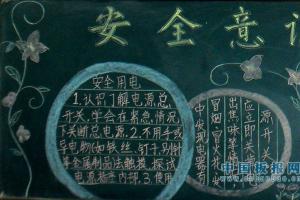 安全意识
安全用电
1.认识了解电源总
开关,学会在紧急情况
下关断总电源。2.不用手或
导电物(如铁丝、钉子、别针
等金属制品)去触摸、探试
电源插座内部。3.使用
中发现电器有
冒烟、冒火花、发
出焦味等
应立即关
源开关
中国板报网